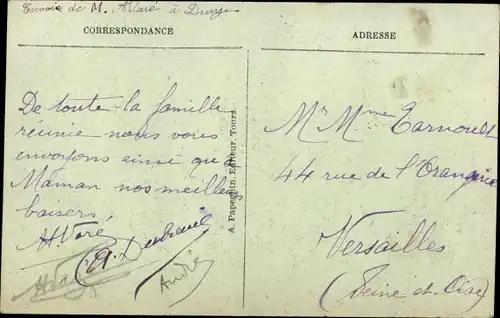 Envoie de M. Allaré à Druye
CORRESPONDANCE
ADRESSE
De toute la famille
réunie nous vous
envoyons ainsi qu'à
Maman nos meilleurs
baisers,
André
A. Papeghin, Editeur, Tours.
Mr Mme Tarnoult
44 rue de l'Orangerie
Versailles
(Seine et Oise)